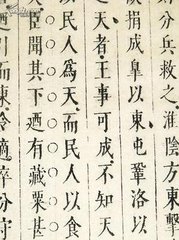 分兵救之淮陰方東擊
捐成皋以東屯鞏洛以
天者王事可成不知天
以民人爲天而民人以食
臣聞其下迺有藏粟甚
迺引而東令適卒分守